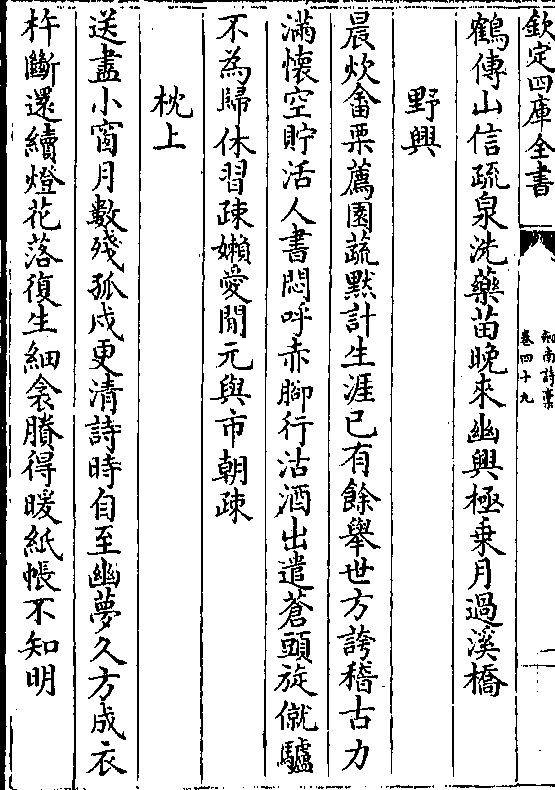 欽定四庫全書
劍南詩稾
卷四十九
一
鶴傳山信疏泉洗藥苗晚來幽興極乗月過溪橋
野興
晨炊畬粟薦園蔬黙計生涯已有餘舉世方誇稽古力
滿懷空貯活人書悶呼赤脚行沽酒出遣蒼頭旋僦驢
不為歸休習疎嬾愛閒元與市朝疎
枕上
送盡小窗月數殘孤戍更清詩時自至幽夢久方成衣
杵斷還續燈花落復生細衾賸得暖紙帳不知明